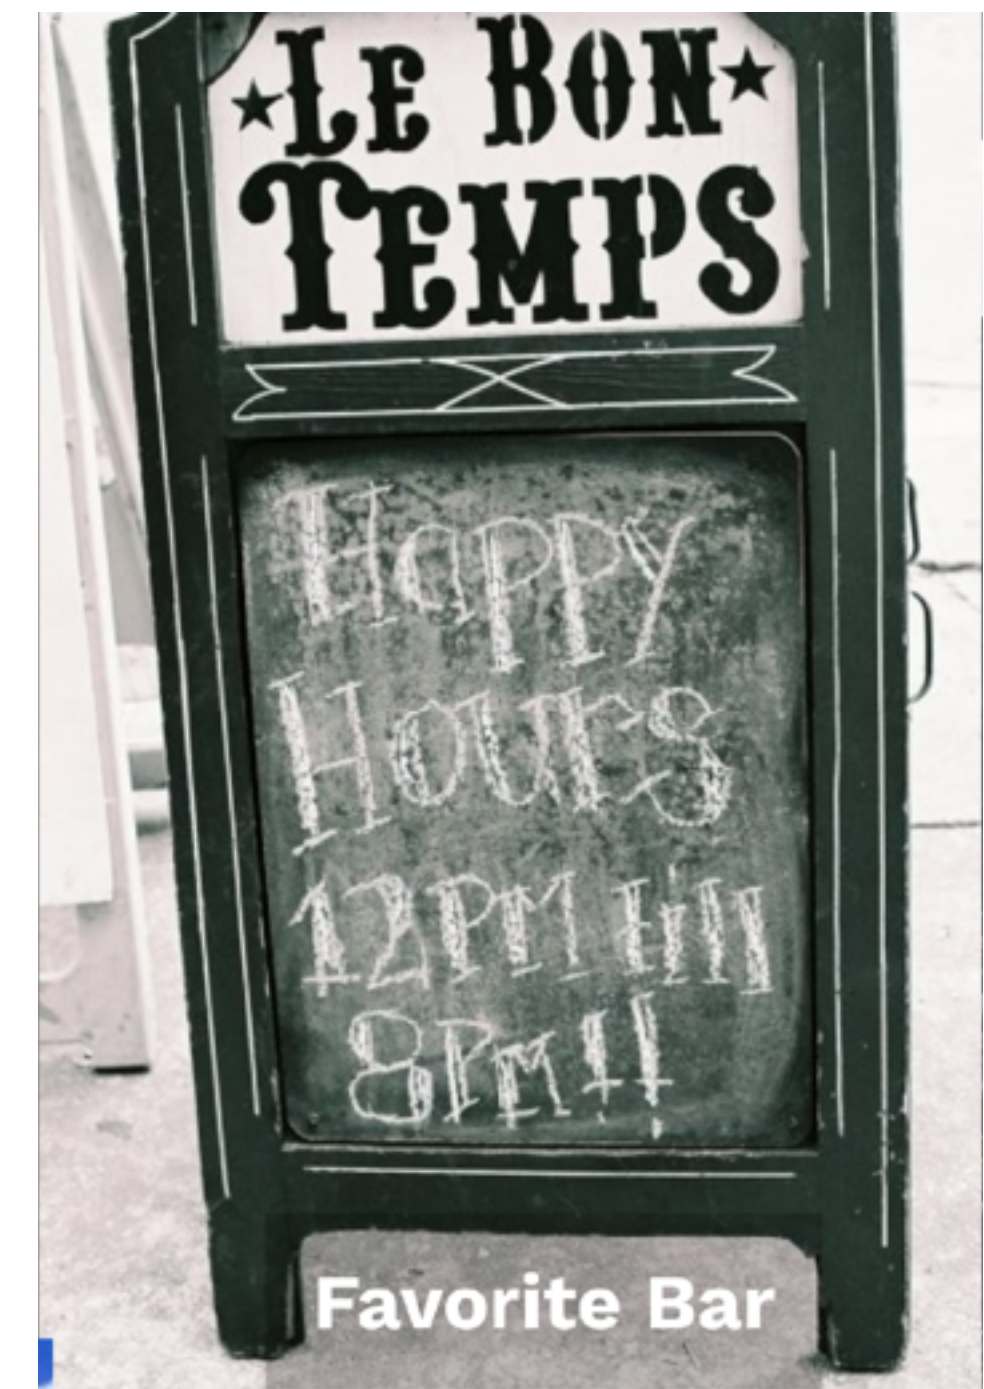 LE BON
TEMPS
Happy
Hours
12PM till
8PM!!
Favorite Bar